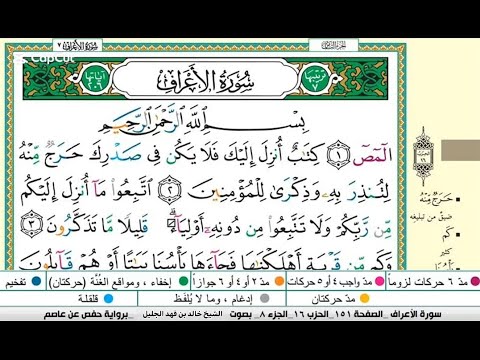 سورة الأعراف ٧
الجزء الثامن
CapCut
آياتها ٢٠٦
سُورَةُ الأَعْرَافِ
ترتيبها ٧
بِسْمِ ٱللَّهِ ٱلرَّحْمَٰنِ ٱلرَّحِيمِ
الٓمٓصٓ ١ كِتَٰبٌ أُنزِلَ إِلَيْكَ فَلَا يَكُن فِى صَدْرِكَ حَرَجٌ مِّنْهُ
لِتُنذِرَ بِهِۦ وَذِكْرَىٰ لِلْمُؤْمِنِينَ ٢ ٱتَّبِعُوا۟ مَآ أُنزِلَ إِلَيْكُم
مِّن رَّبِّكُمْ وَلَا تَتَّبِعُوا۟ مِن دُونِهِۦٓ أَوْلِيَآءَ ۗ قَلِيلًا مَّا تَذَكَّرُونَ ٣
وَكَم مِّن قَرْيَةٍ أَهْلَكْنَٰهَا فَجَآءَهَا بَأْسُنَا بَيَٰتًا أَوْ هُمْ قَآئِلُونَ
حَرَجٌ مِّنْهُ
ضيق من تبليغه
كَم
كثير
بَأْسُنَا
مدّ ٦ حركات لزوماً
مدّ واجب ٤ أو ٥ حركات
مدّ ٢ أو ٤ أو ٦ جوازاً
إخفاء ، ومواقع الغُنَّة (حركتان)
تفخيم
مدّ حركتان
إدغام ، وما لا يُلفَظ
قلقلة
سورة الأعراف _الصفحة ١٥١ _الحزب ١٦ _الجزء ٨_ بصوت الشيخ خالد بن فهد الجليل _برواية حفص عن عاصم